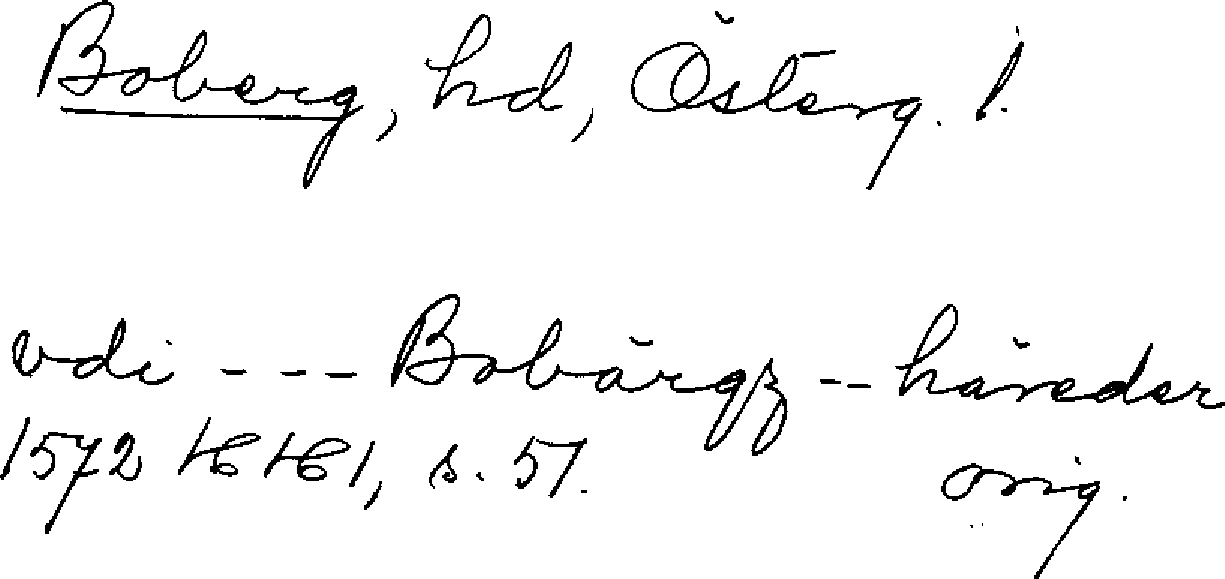 Boberg, hd, Österg. l.
vdi --- Bobärgz -- häreder
1572 HH 1, s. 51. orig.